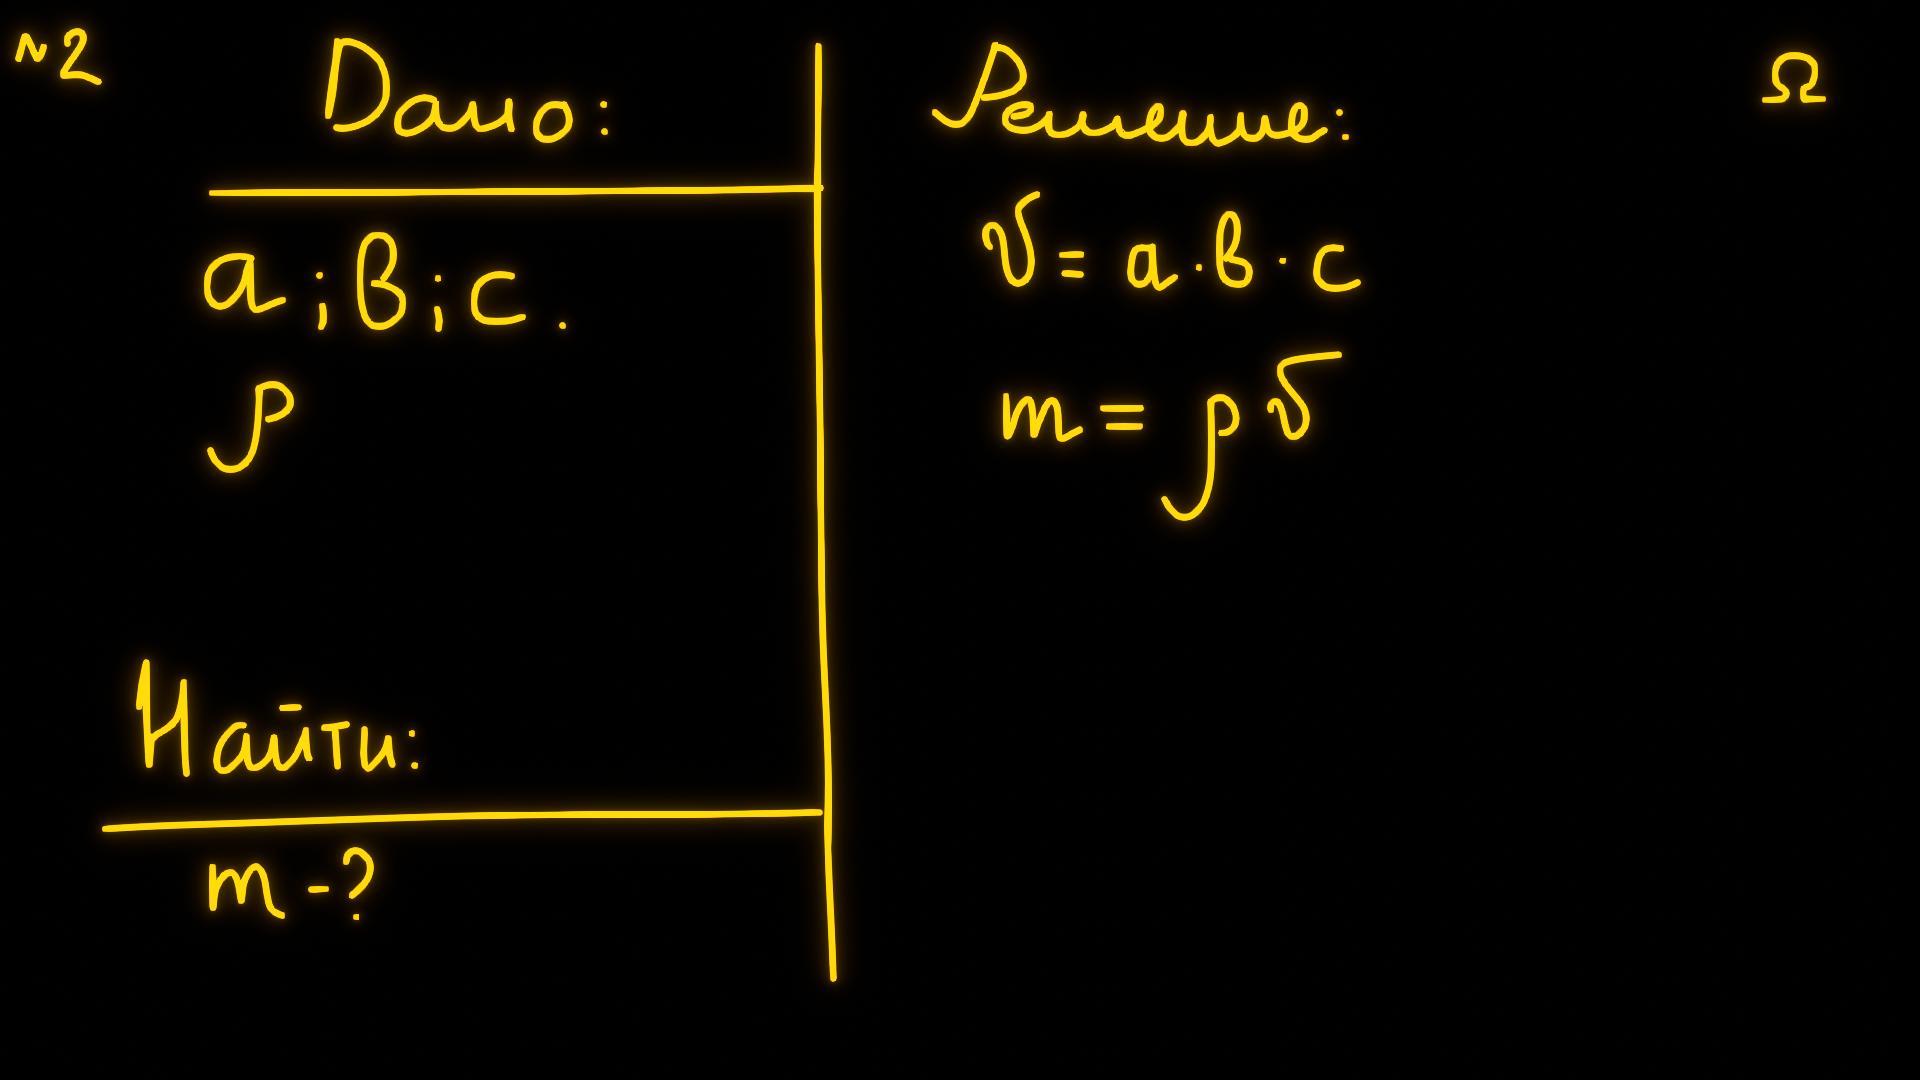 ~2
Дано:
a; b; c.
ρ
Найти:
m - ?
Решение:
V = a · b · c
m = ρV
Ω